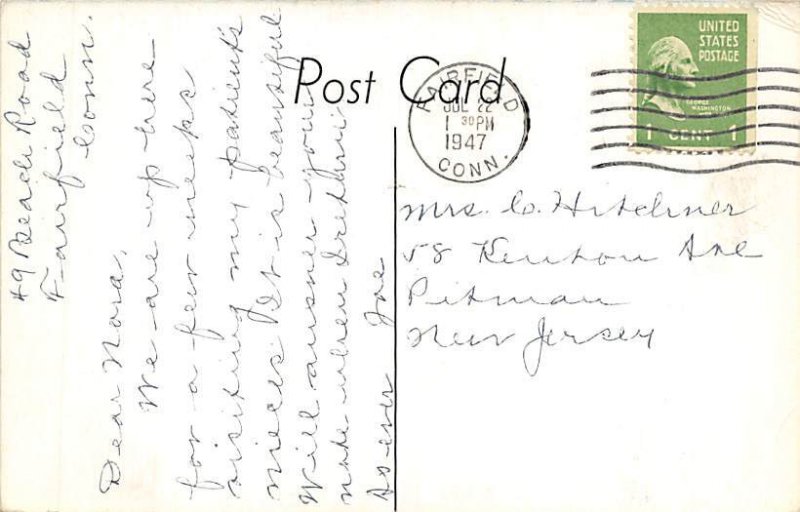 Post Card
FAIRFIELD
JUL 22
1 30 PM
1947
CONN.
UNITED
STATES
POSTAGE
GEORGE
WASHINGTON
1 CENT 1
49 Beach Road
Fairfield
Conn.
Dear Nora,
We are up here
for a few weeks
visiting my patient's
nieces. It is beautiful
Will answer your
note when I return
As ever
Mrs. C. Hitchner
58 Kenton Ave
Pitman
New Jersey